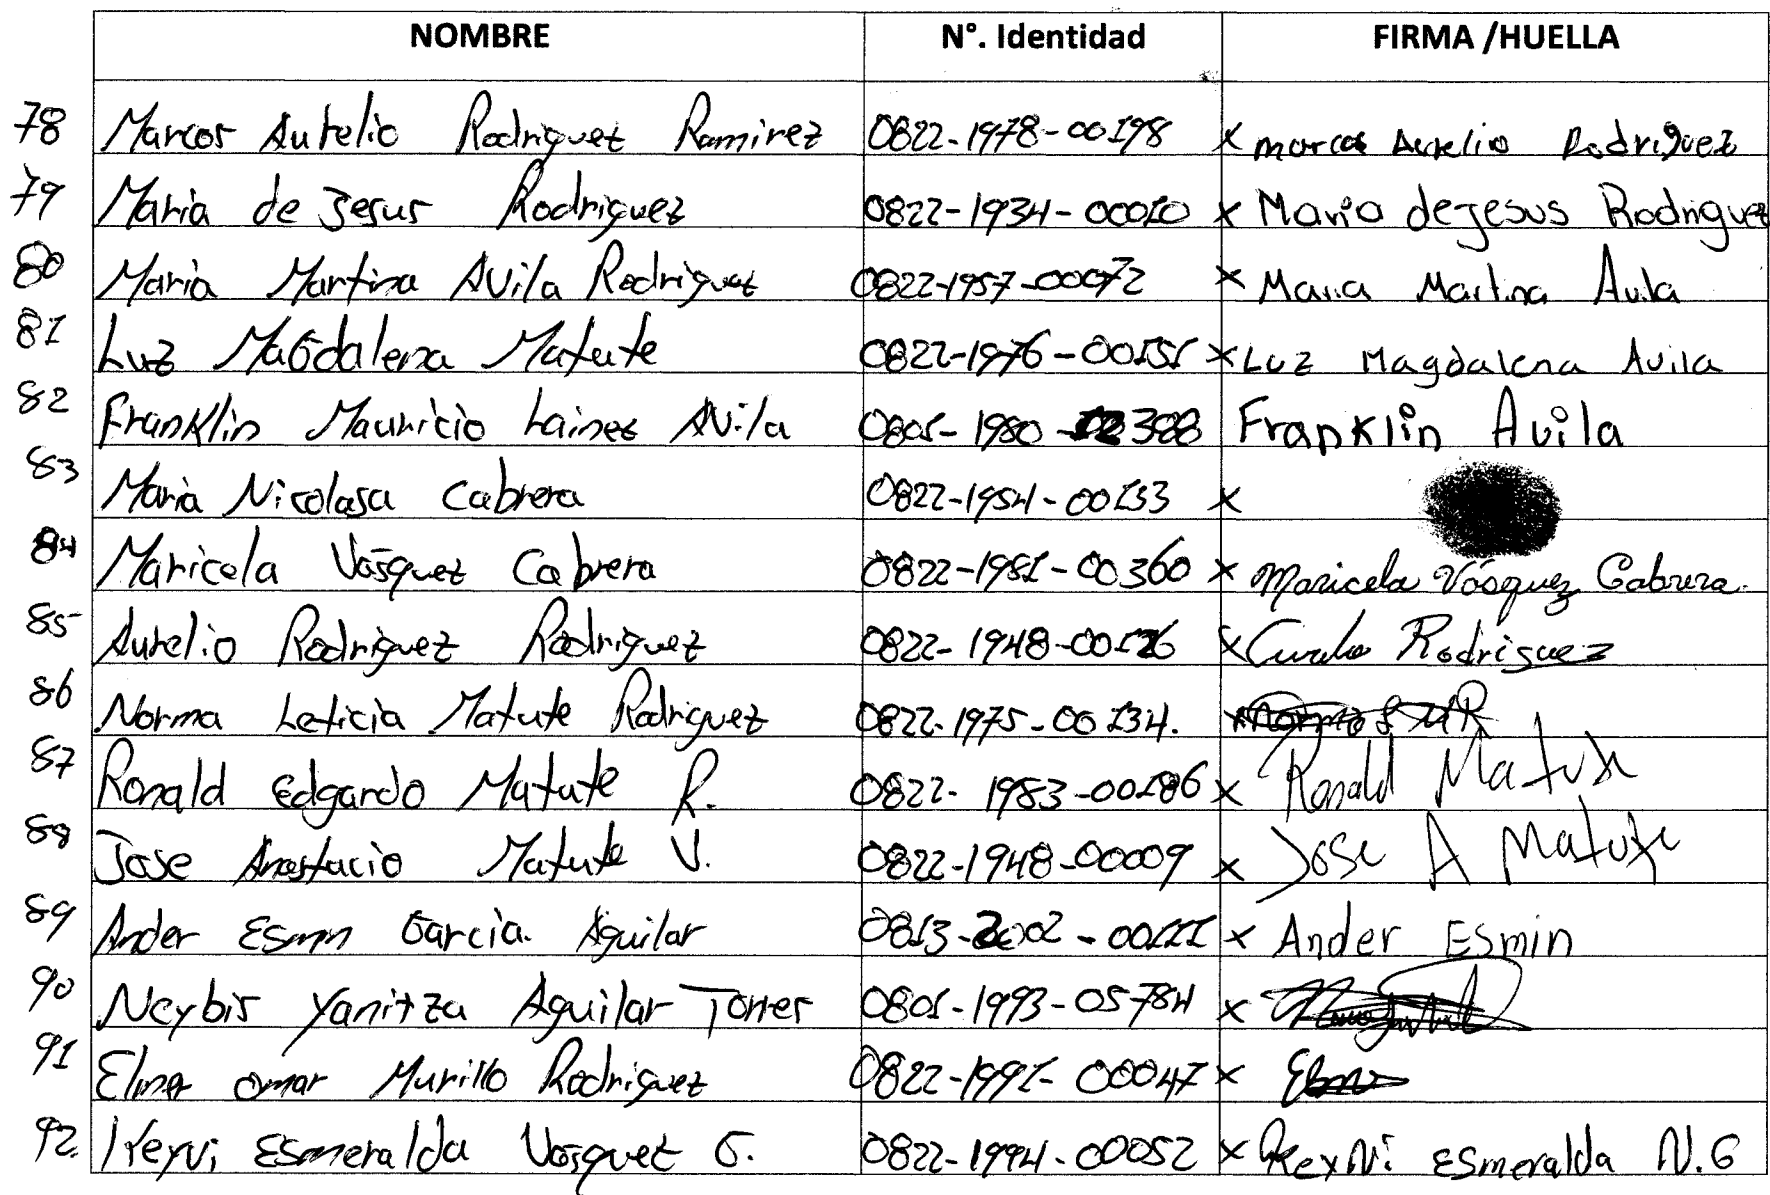 NOMBRE N°. Identidad FIRMA /HUELLA
78 Marcos Aurelio Rodriguez Ramirez 0822-1978-00198 x marcos Aurelio Rodriguez
79 Maria de Jesus Rodriguez 0822-1934-00010 x Maria de Jesus Rodriguez
80 Maria Martina Avila Rodriguez 0822-1957-00072 x Maria Martina Avila
81 Luz Magdalena Matute 0822-1976-00151 x Luz Magdalena Avila
82 Franklin Mauricio Lainez Avila 0801-1980- Franklin Avila
83 Maria Nicolasa Cabrera 0822-1954-00133 x
84 Maricela Vásquez Cabrera 0822-1981-00360 x Maricela Vásquez Cabrera.
85 Aurelio Rodriguez Rodriguez 0822-1948-00126 x Rodriguez
86 Norma Leticia Matute Rodriguez 0822-1975-00134. x
87 Ronald Edgardo Matute R. 0822-1983-00186 x Ronald Matute
88 Jose Anastacio Matute V. 0822-1948-00009 x Jose A Matute
89 Ander Esmin Garcia. Aguilar 0813-2002-00111 x Ander Esmin
90 Neybis Yanitza Aguilar Torres 0801-1993-05784 x
91 Elmer omar Murillo Rodriguez 0822-1991-00047 x
92. Esmeralda Vasquez G. 0822-1994-00052 x Esmeralda V.G